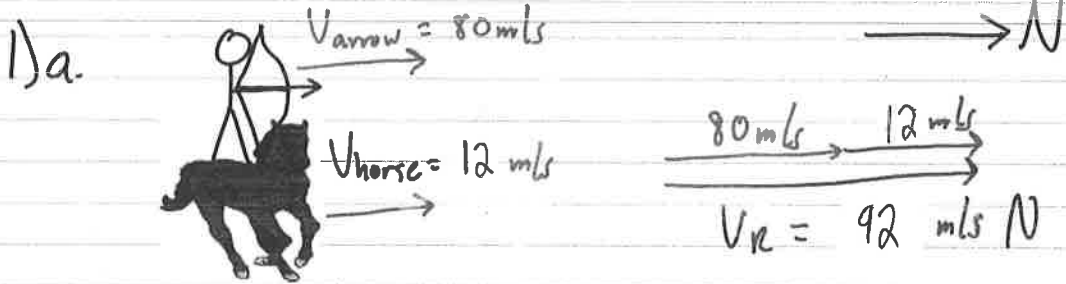 1)a.
Varrow = 80 m/s
N
Vhorse = 12 m/s
80 m/s 12 m/s
VR = 92 m/s N